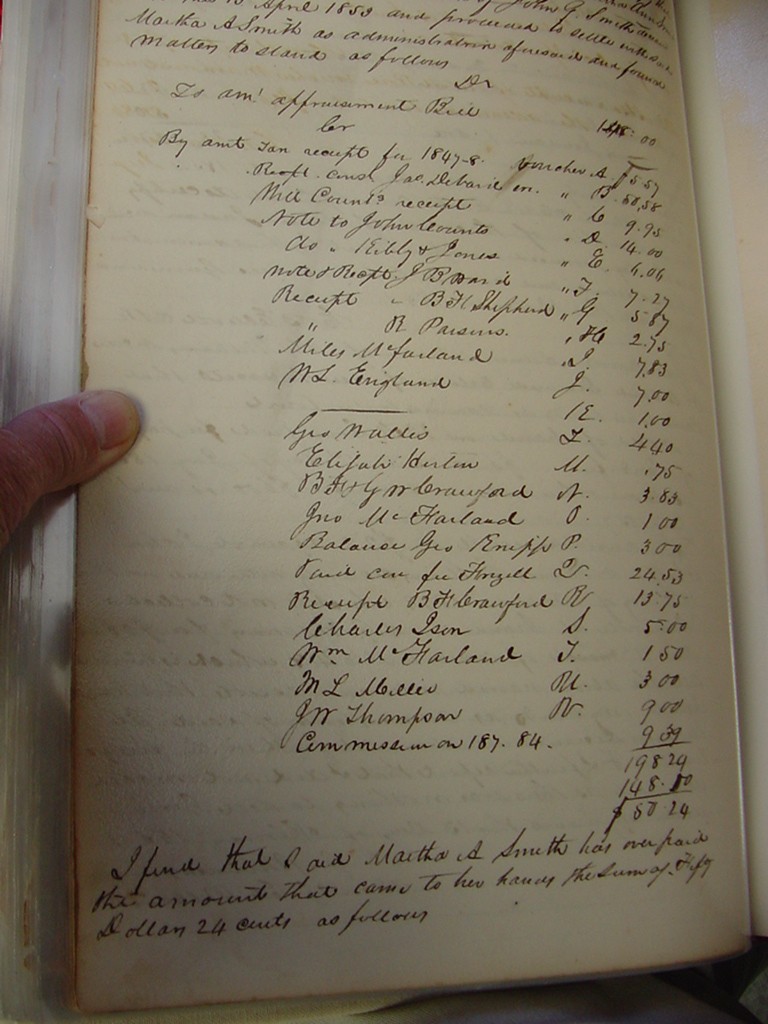 of John G. Smith
10 April 1853 and proceeded to settle with
Martha A Smith as administratrix aforesaid and found
matters to stand as follows
Dr
To amt appraisement Bill 148.00
Cr
By amt Tax receipt for 1847-8. Voucher A. $5.57
Recpt. Const Jas. Debard in. " B 50.58
receipt " C 9.75
Note to John Counts " D. 14.00
do " Kibby & Jones " E. 4.04
note & Recpt. J B Bard " F. 7.27
Receipt " B F Shepherd " G 5.87
" R Parsons. " H 2.75
Miles McFarland " I. 7.83
W L. England J. 7.00
K. 1.00
Geo Wallis L. 4 40
Elijah Horton M. .75
B F & G W Crawford N. 3.83
Jno McFarland O. 1 00
Balance Geo P. 3 00
Paid Q. 24.53
Receipt B F Crawford R 13.75
Charles Ison S. 5.00
Wm McFarland T. 1 50
M L Miller U. 3 00
J W Thompson V. 9 00
Commission on 187.84. 9 39
198 24
148.00
$ 50.24
I find that Said Martha A Smith has over paid
the amount that came to her hands the Sum of Fifty
Dollars 24 cents as follows